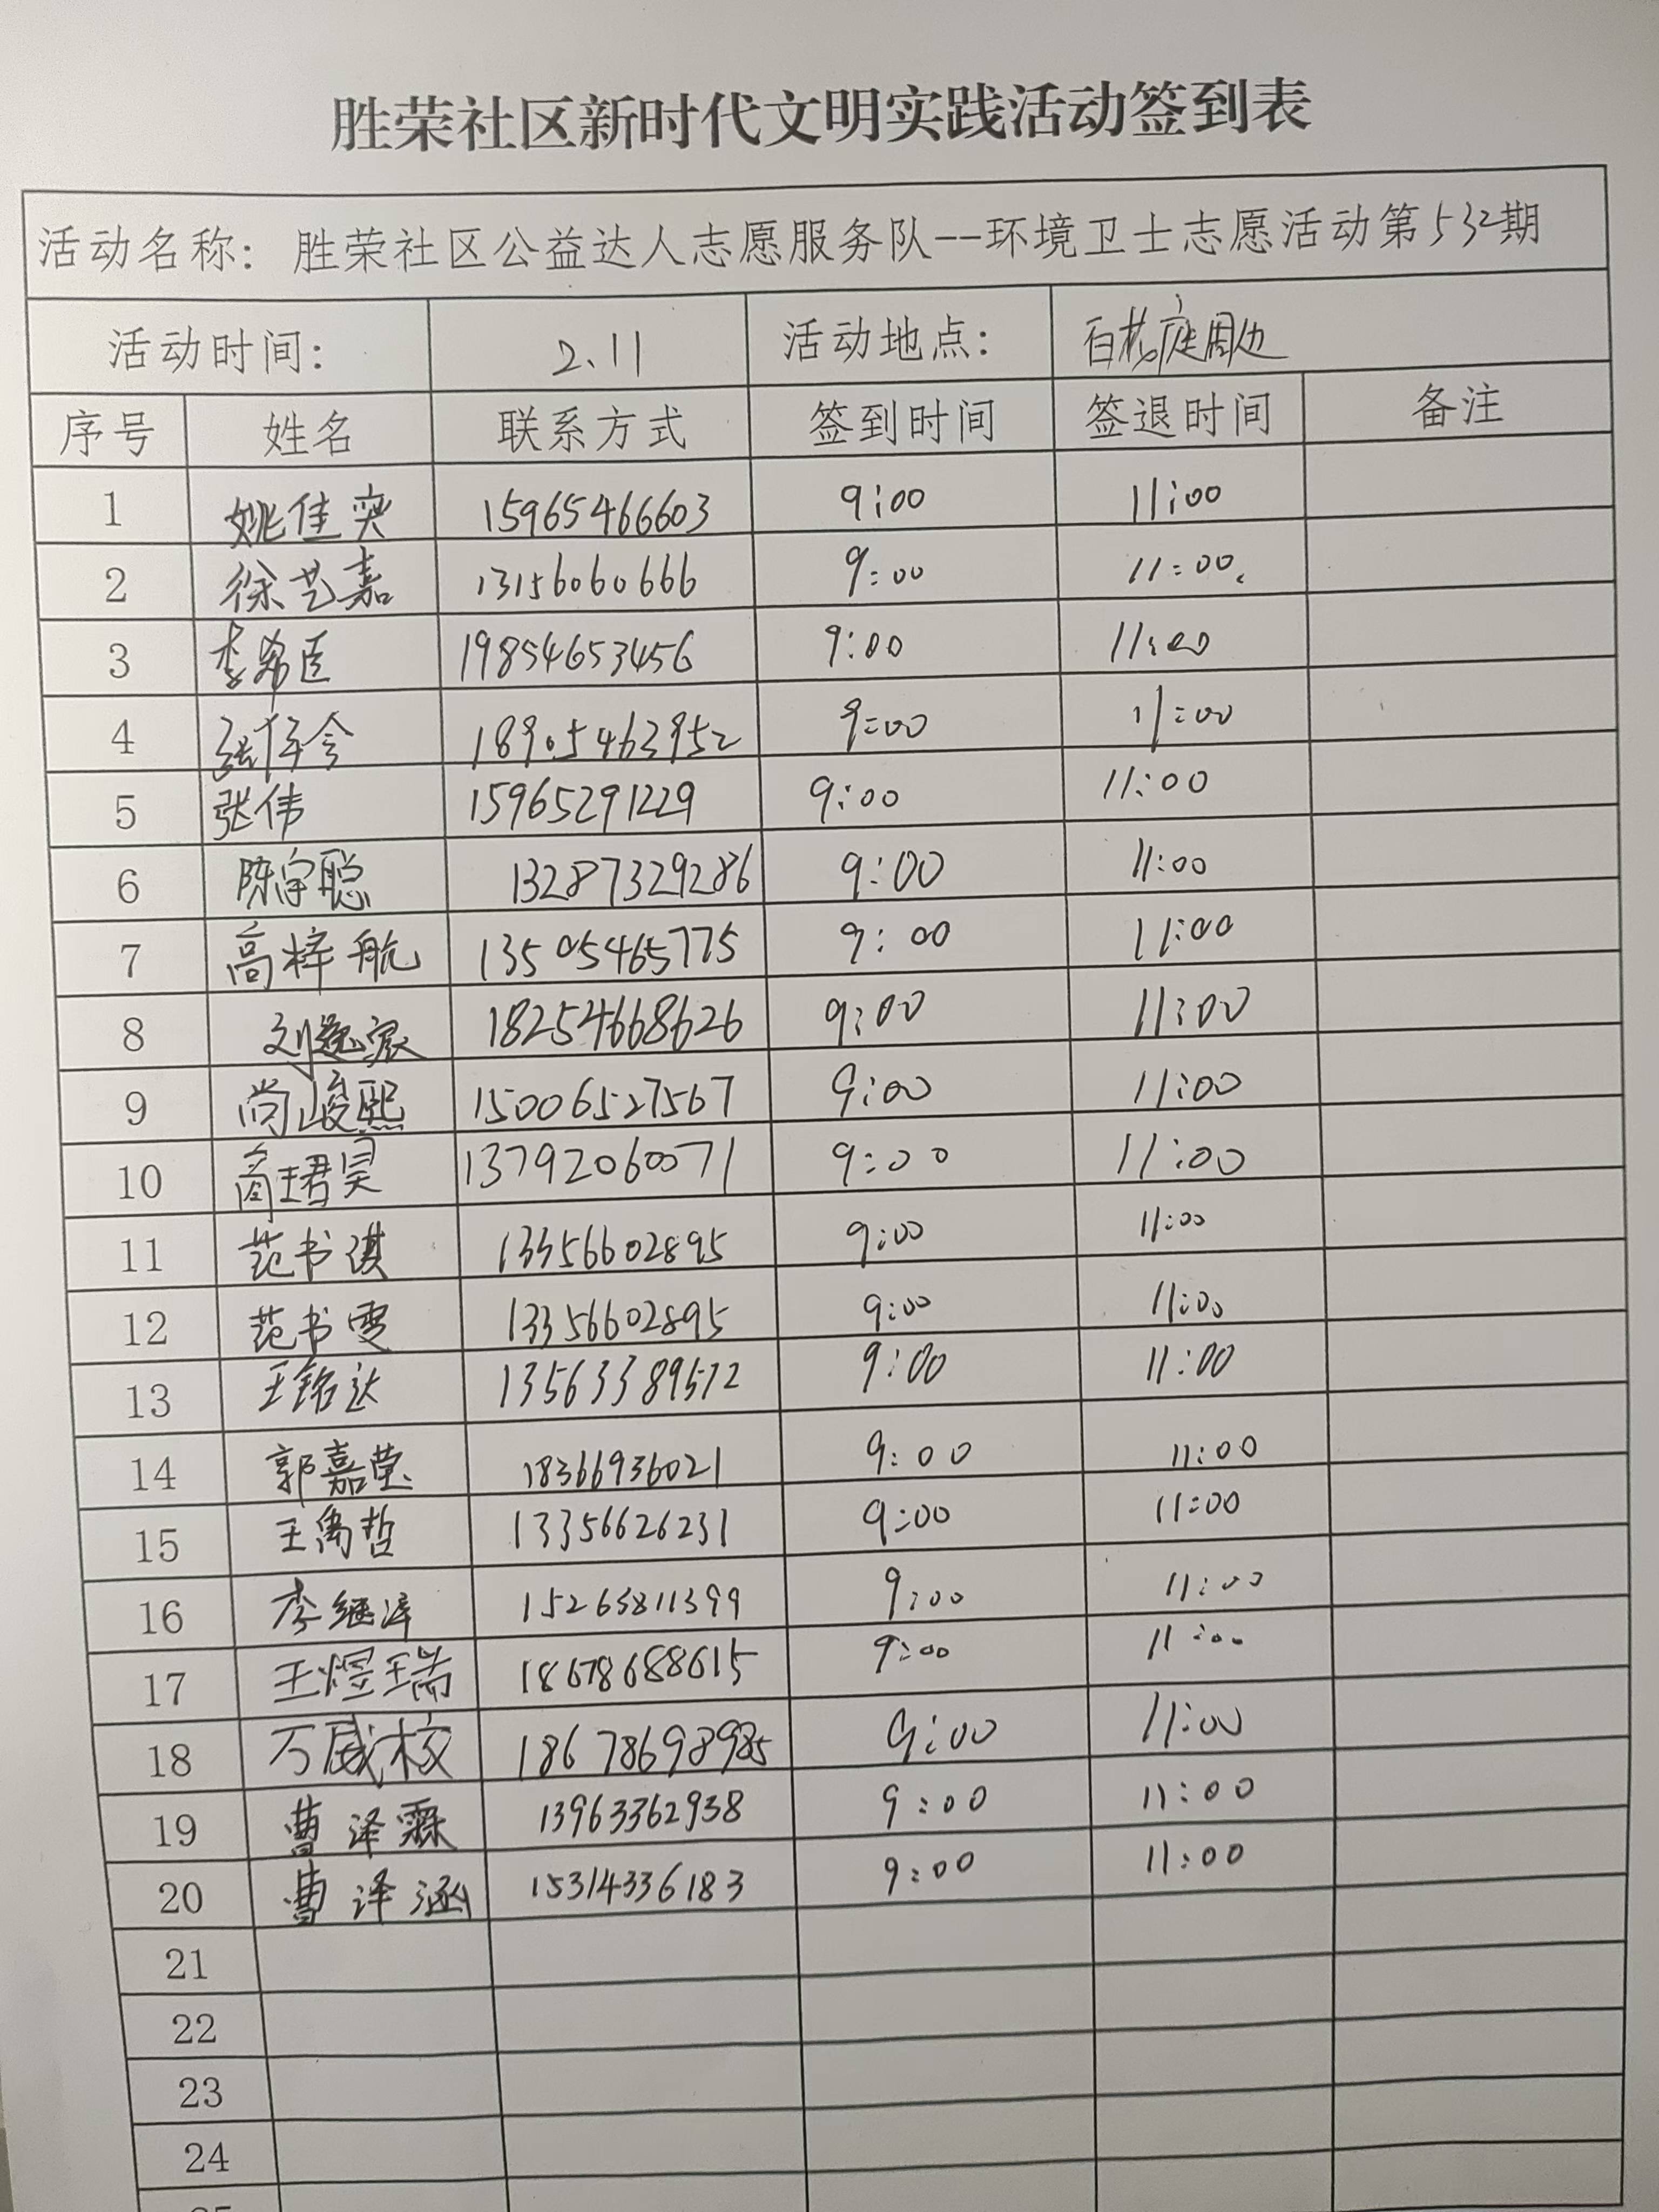 胜荣社区新时代文明实践活动签到表
活动名称：胜荣社区公益达人志愿服务队--环境卫士志愿活动第532期
活动时间： 2.11 活动地点： 百花庭周边
序号 姓名 联系方式 签到时间 签退时间 备注
1 姚佳奕 15965466603 9:00 11:00
2 徐艺嘉 13156060666 9:00 11:00
3 李希臣 19854653456 9:00 11:00
4 18905463952 9:00 11:00
5 张伟 15965291229 9:00 11:00
6 陈宇聪 13287329286 9:00 11:00
7 高梓航 13505465775 9:00 11:00
8 刘逸宸 18254668626 9:00 11:00
9 尚峻熙 15006527567 9:00 11:00
10 商珺昊 13792060071 9:00 11:00
11 范书淇 13356602895 9:00 11:00
12 范书雯 13356602895 9:00 11:00
13 王铭达 13563389512 9:00 11:00
14 郭嘉莹 18366936021 9:00 11:00
15 王禹哲 13356626231 9:00 11:00
16 李继泽 15263811399 9:00 11:00
17 王煜瑞 18678688615 9:00 11:00
18 万威校 18678698985 9:00 11:00
19 曹泽霖 13963362938 9:00 11:00
20 曹泽涵 15314336183 9:00 11:00
21
22
23
24